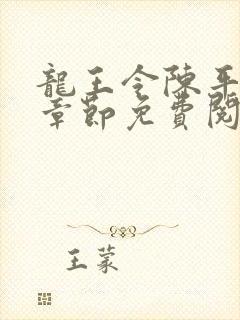 龍王令陳平
章節免費閱
王蒙